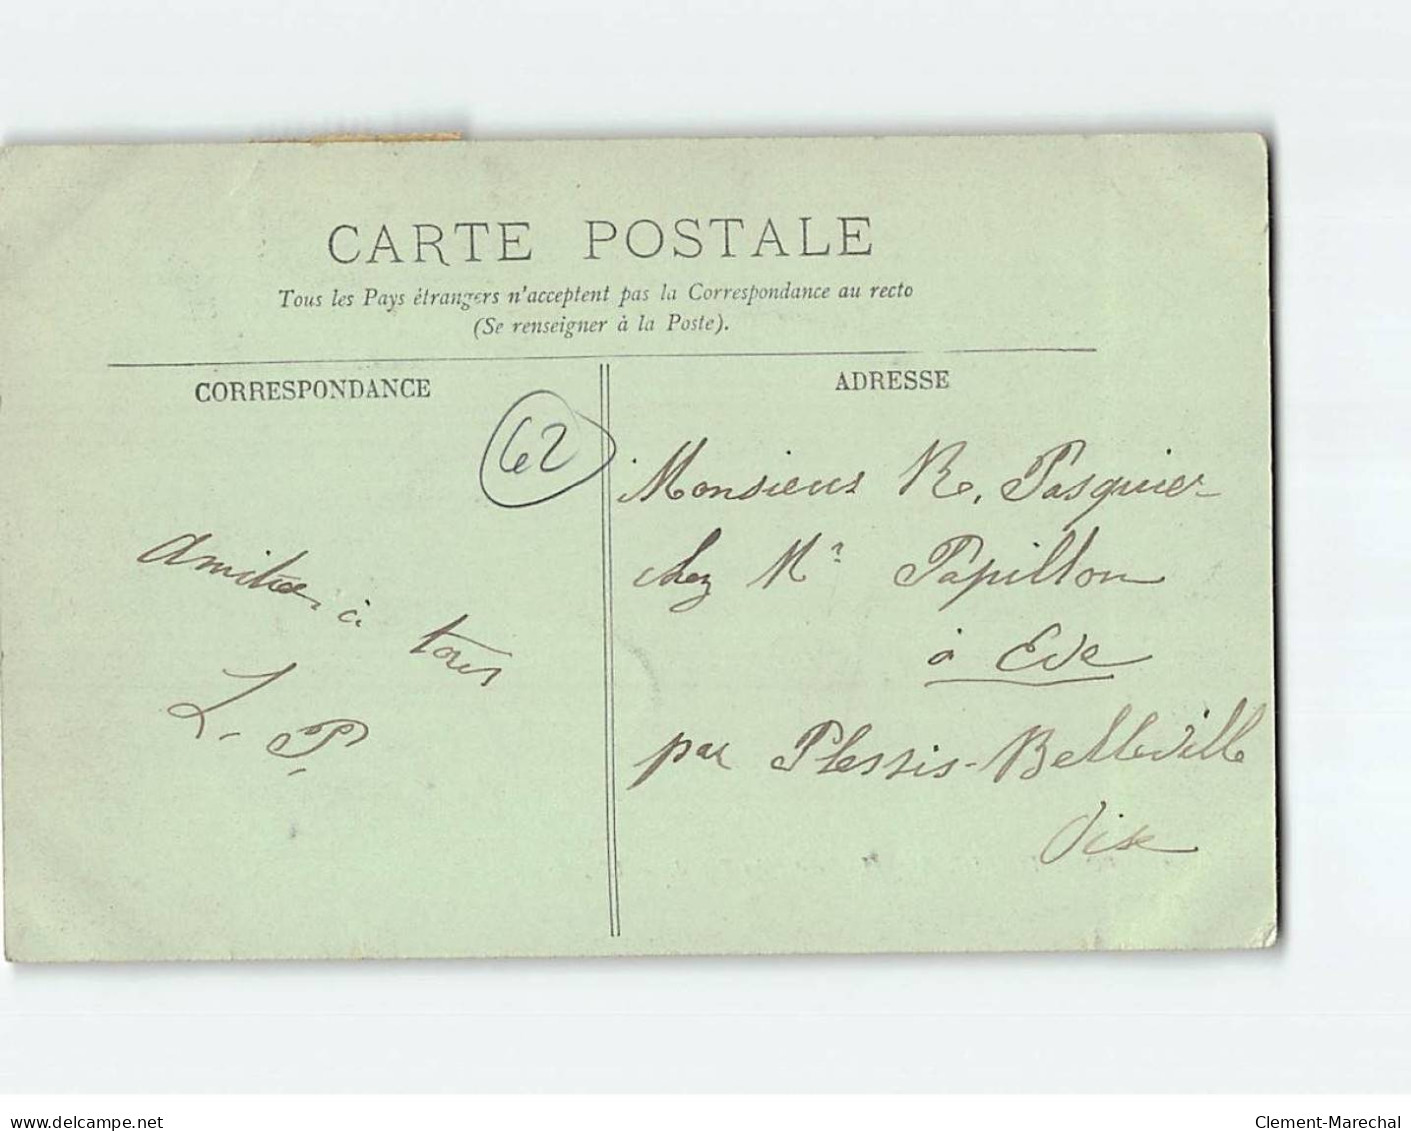 CARTE POSTALE
Tous les Pays étrangers n'acceptent pas la Correspondance au recto
(Se renseigner à la Poste).
CORRESPONDANCE
62
Amitiés à tous
L. P.
ADRESSE
Monsieur R. Pasquier
chez Mr Papillon
à Eve
par Plessis-Belleville
Oise
www.delcampe.net
Clement-Marechal